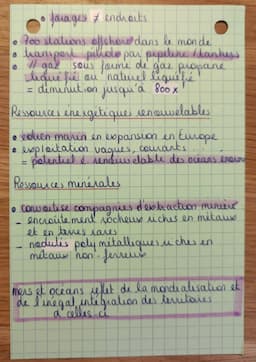 forages ≠ endroits
• 700 stations offshore dans le monde
• transport pétrole par pipeline / tankers
• // gaz sous forme de gaz propane
liquéfié ou naturel liquéfié
= diminution jusqu'à 800 x
Ressources énergétiques renouvelables
• éolien marin en expansion en Europe
• exploitation vagues, courants
= potentiel é. renouvelable des océans énorme
Ressources minérales
• convoitise compagnies d'extraction minière
- encroûtement rocheux riches en métaux
et en terres rares
- nodules polymétalliques riches en
métaux non-ferreux
mers et océans reflet de la mondialisation et
de l'inégal intégration des territoires
à celles-ci